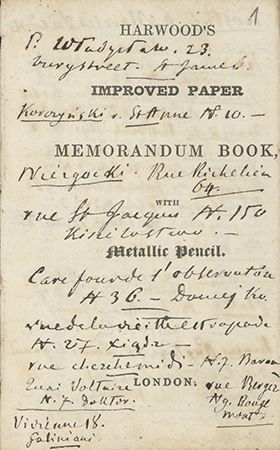 1
HARWOOD'S
P. Władysław. 23.
bury street. St James.
IMPROVED PAPER
Korczyński r. St Anne N 10. —
MEMORANDUM BOOK,
Wiérgocki. Rue Richelieu
64.
WITH
rue St Jacques N. 150
Kisielostwo. —
Metallic Pencil.
Care four de l'observatoire
N 36 — Domejko
rue de la vieille estrapade
N 27. Xiądz —
rue cherchemidi — N. 7. Baron
Quai Voltaire
LONDON:
rue Berger
N. 7. doktor.
N 9. Rouge
mont.
Vivienne 18.
Galiniani.